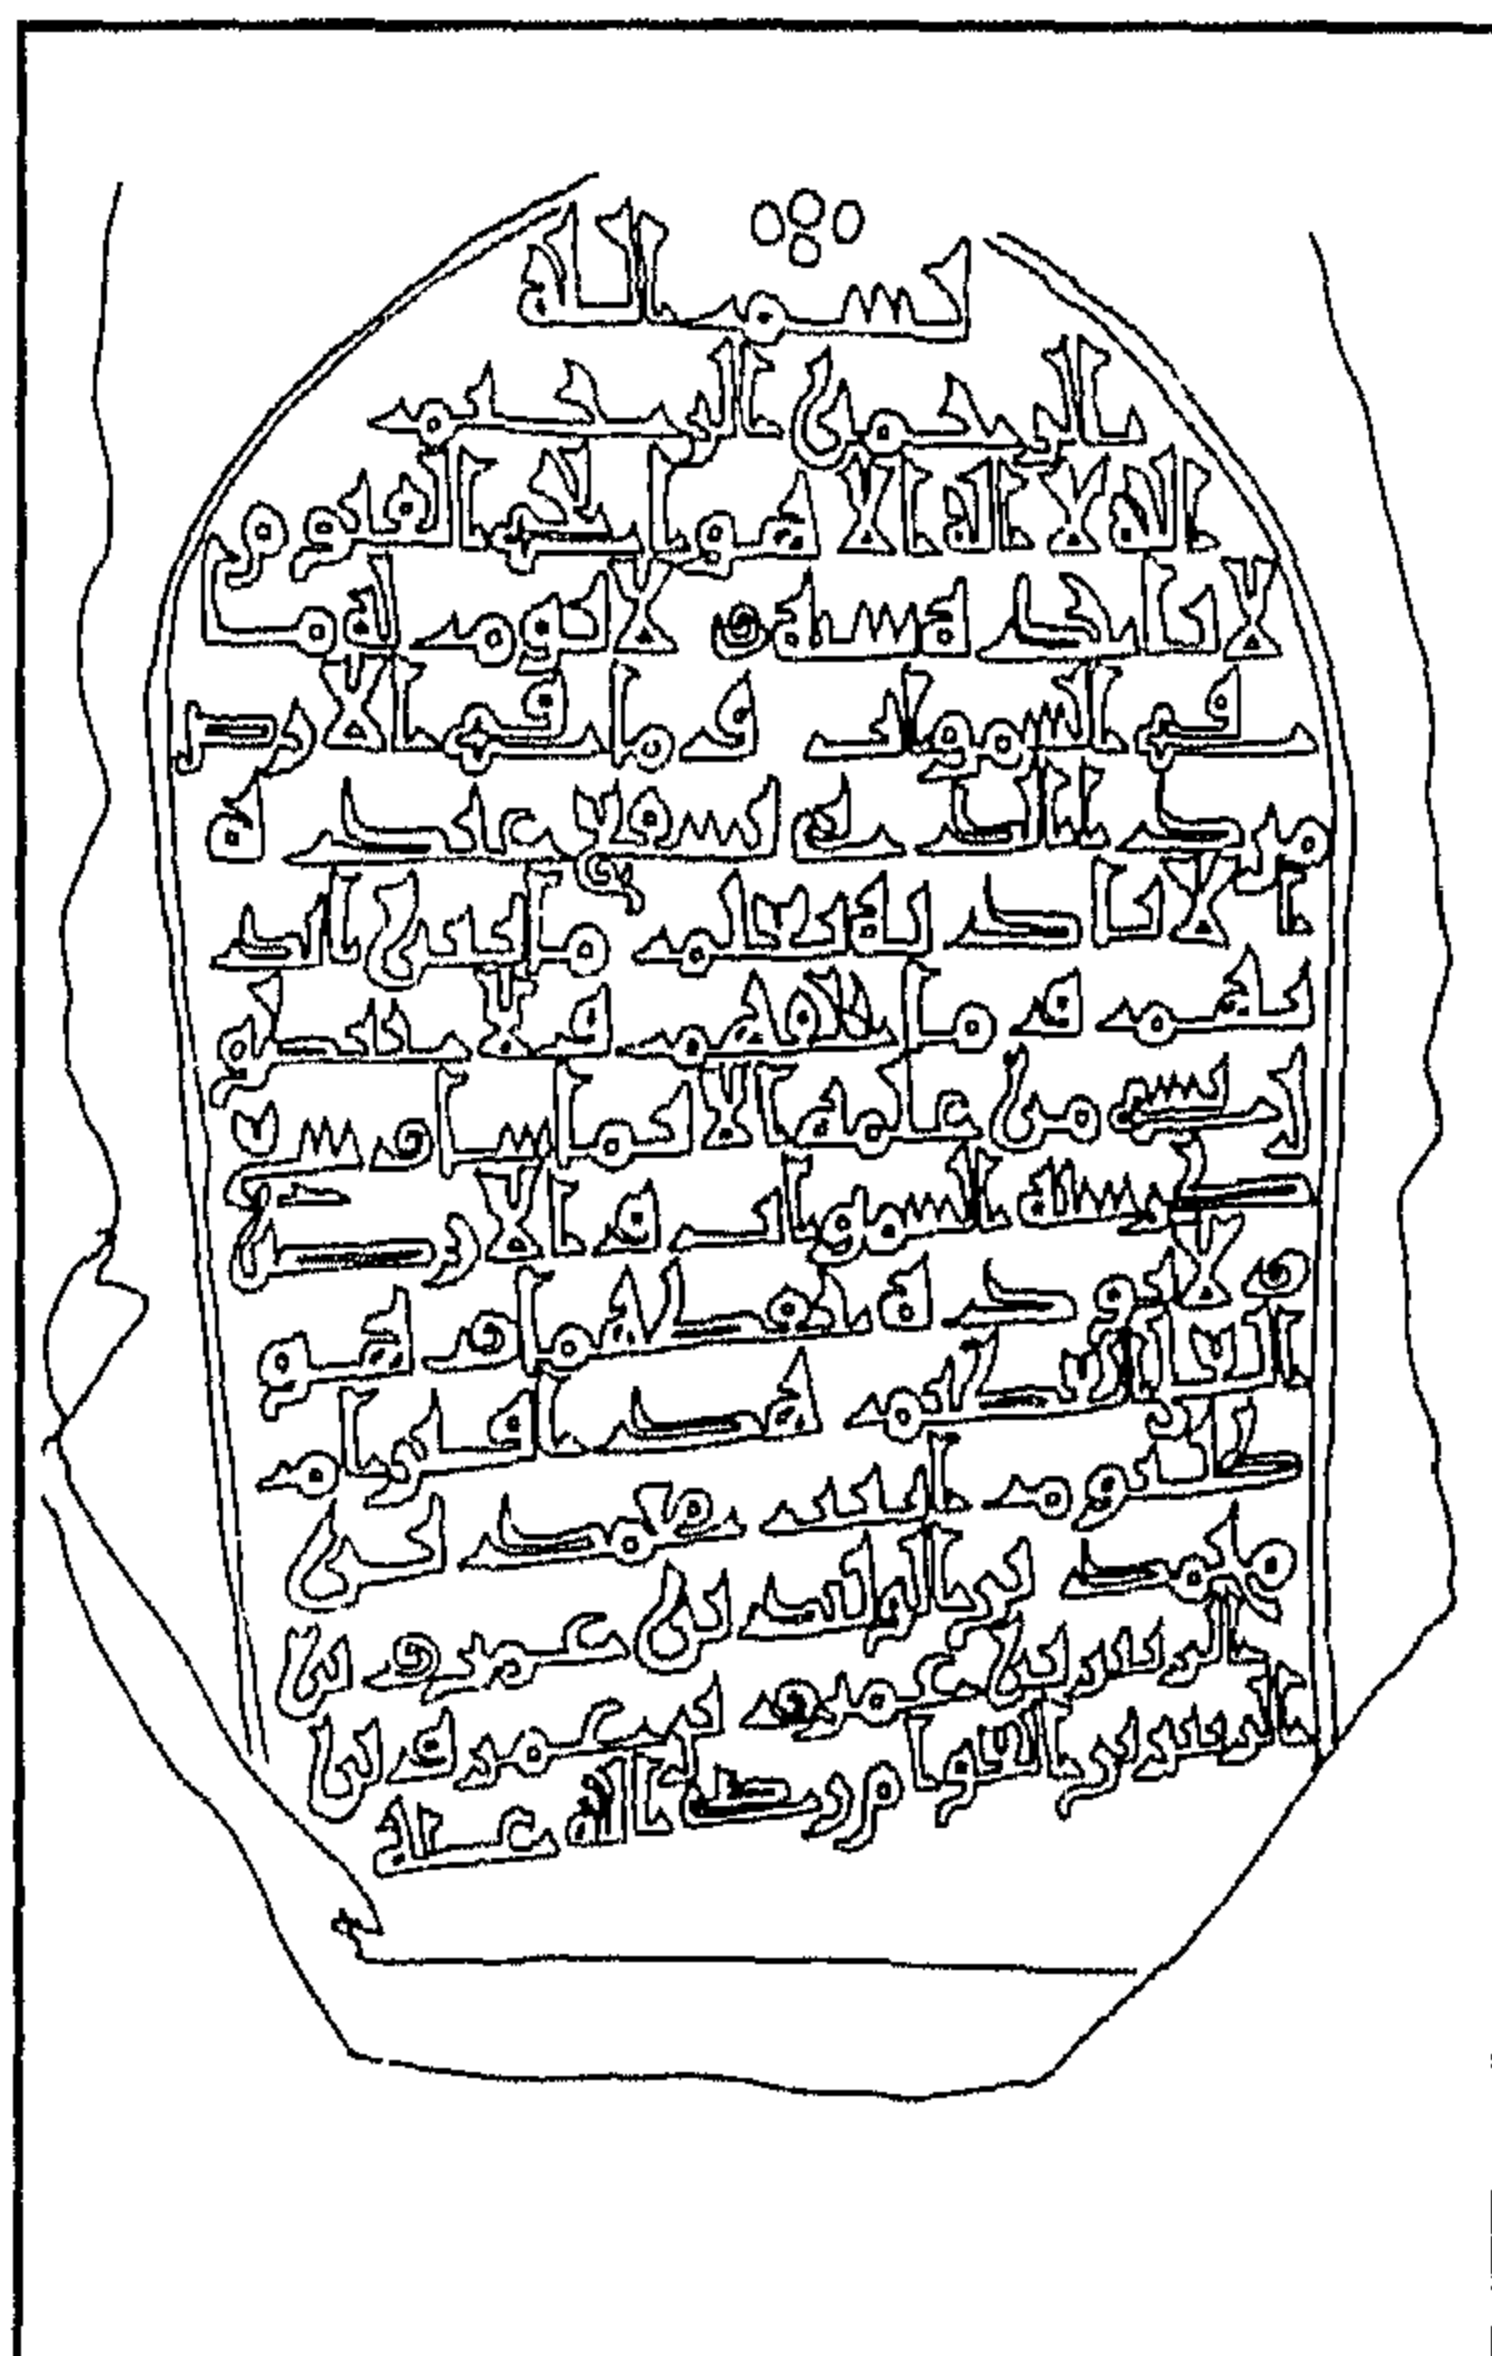 بسم الله
الرحمن الرحيم
الله لا اله الا هو الحي القيوم
لا تاخذه سنة و لا نوم له ما
في السموات و ما في الارض
من ذا الذي يشفع عنده
ا لا باذنه يعلم ما بين ايد
يهم و ما خلفهم و لا يحيطو
ن بشي من علمه الا بما شا وسع
كرسيه السموات و الارض
و لا يوده حفظهما و هو
العلي العظيم هذا قبر ام
كلثوم ابنت محمد بن
محمد بن الوليد بن عمرو بن
الزبير بن عمرو بن عمرو بن
الزبير بن العوام رضي الله عنه